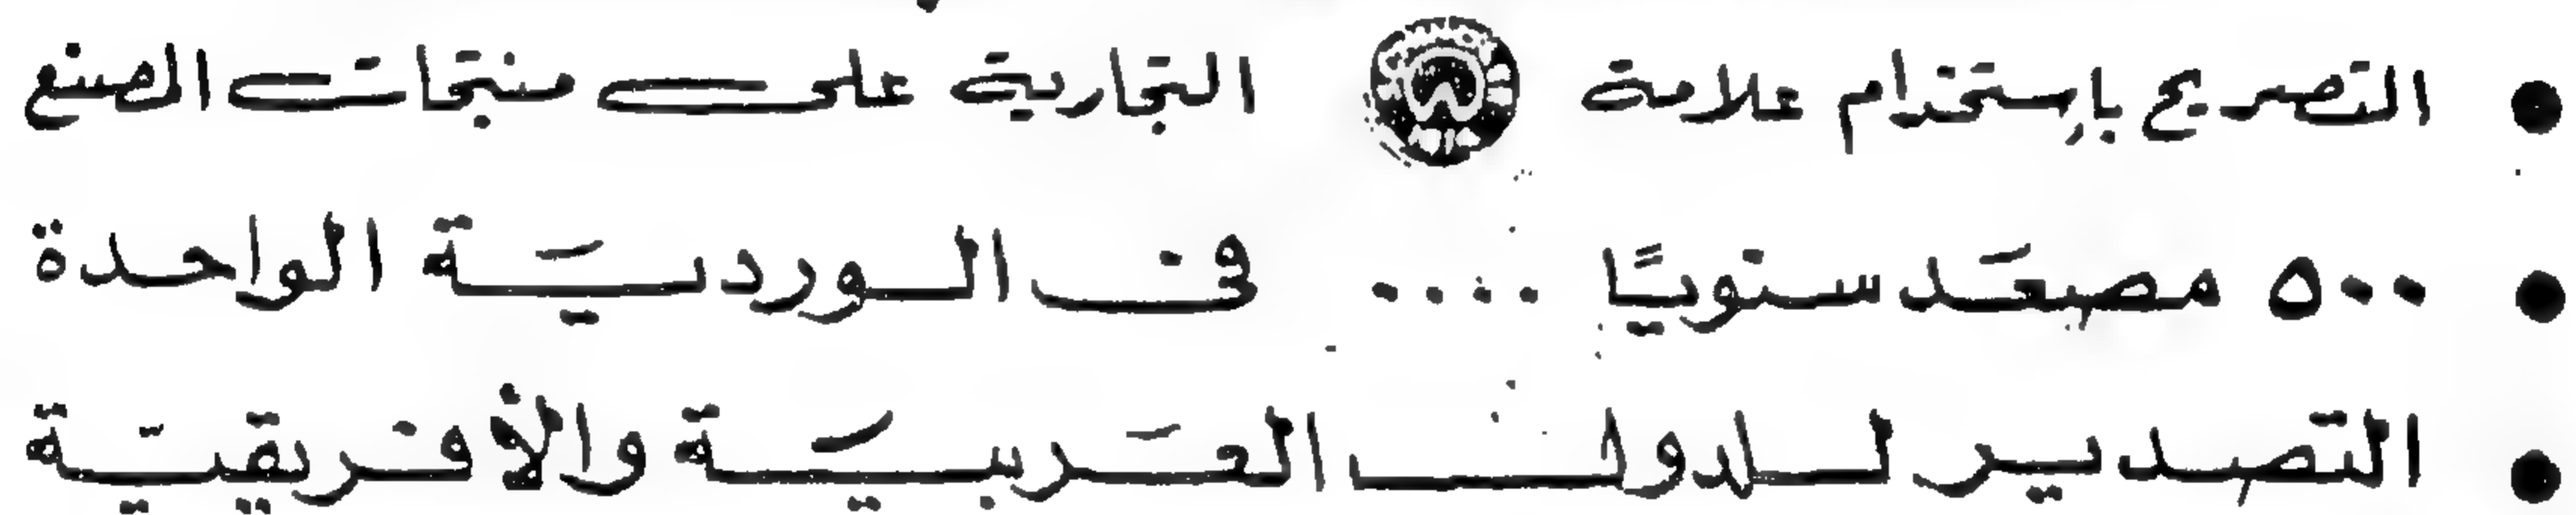 • التصريح بإستخدام علامة التجارية على منتجات المصنع
• ٥٠٠ مصعَد سنويًا .... فى الورديَة الواحدة
• التصدير للدول العَربيَة والأفريقيَة